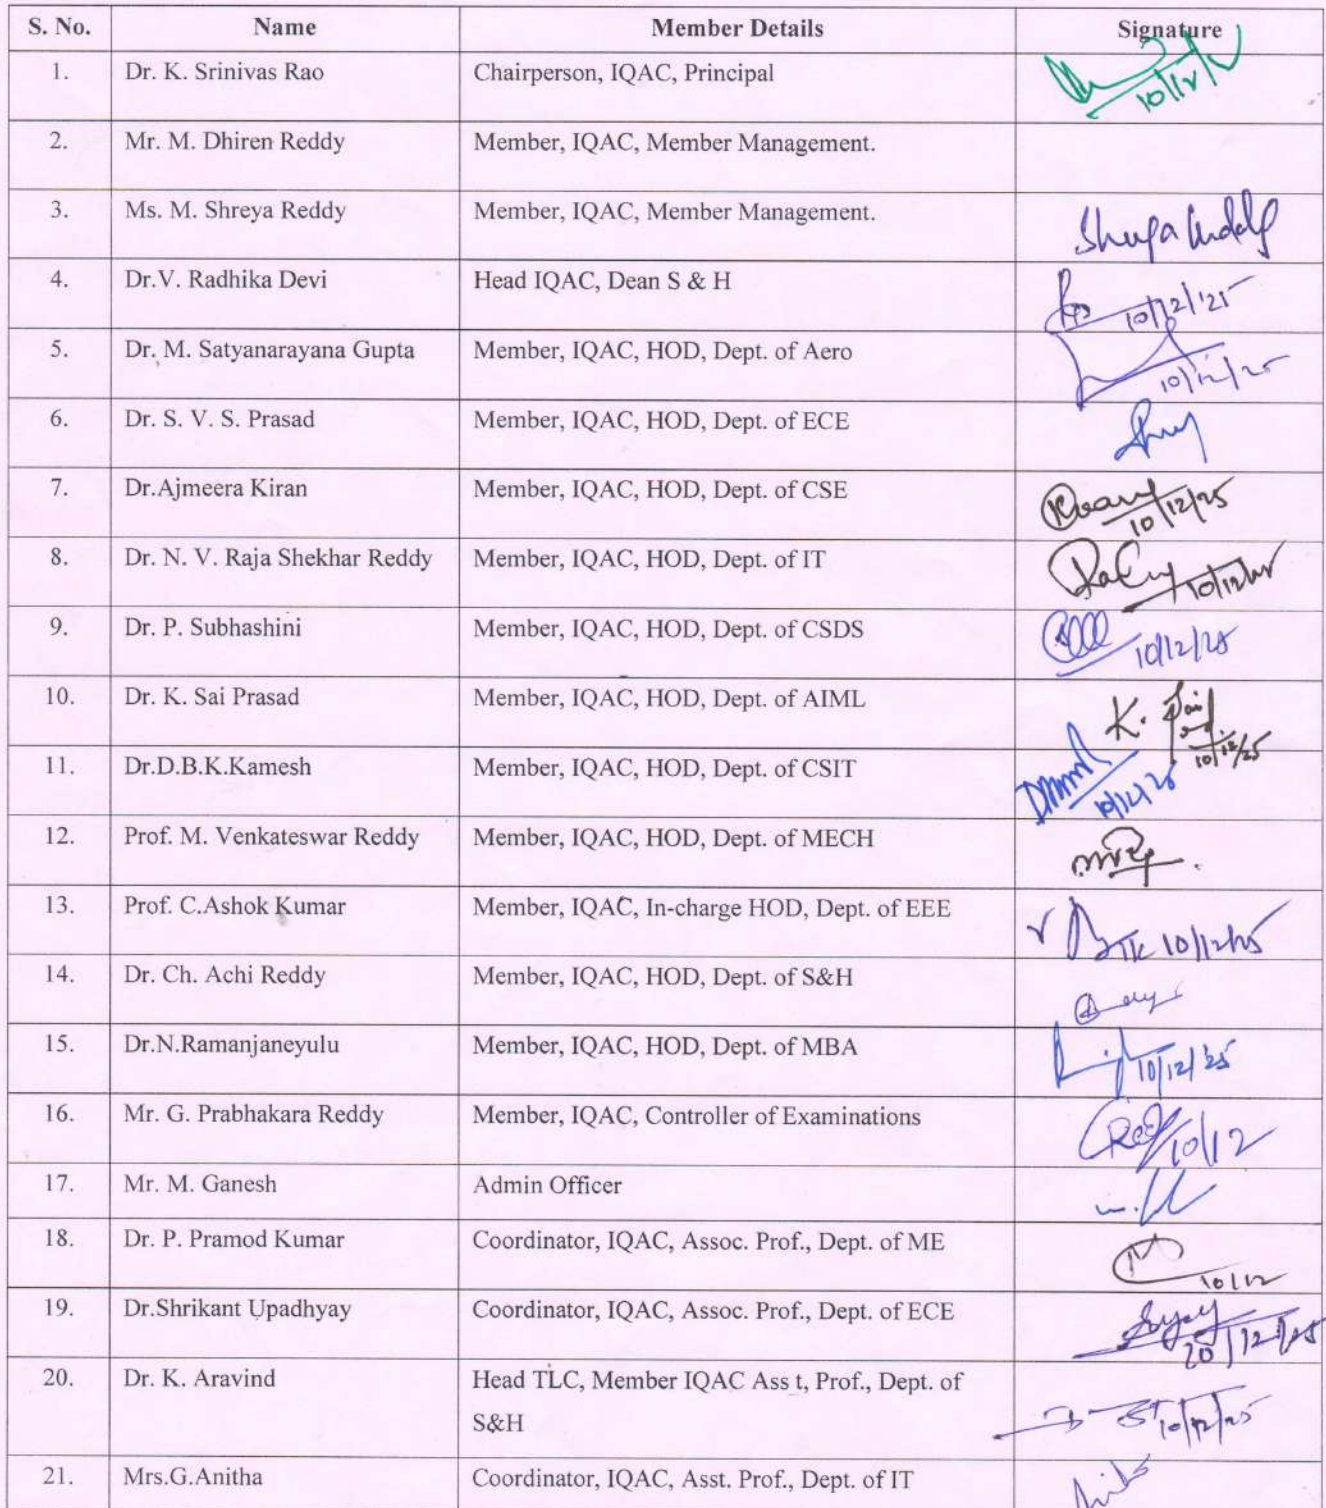 S. No. Name Member Details Signature
1. Dr. K. Srinivas Rao Chairperson, IQAC, Principal
10/12/
2. Mr. M. Dhiren Reddy Member, IQAC, Member Management.
3. Ms. M. Shreya Reddy Member, IQAC, Member Management.
4. Dr.V. Radhika Devi Head IQAC, Dean S & H
10/12/'25
5. Dr. M. Satyanarayana Gupta Member, IQAC, HOD, Dept. of Aero
10/12/25
6. Dr. S. V. S. Prasad Member, IQAC, HOD, Dept. of ECE
7. Dr.Ajmeera Kiran Member, IQAC, HOD, Dept. of CSE
10/12/25
8. Dr. N. V. Raja Shekhar Reddy Member, IQAC, HOD, Dept. of IT
10/12/25
9. Dr. P. Subhashini Member, IQAC, HOD, Dept. of CSDS
10/12/25
10. Dr. K. Sai Prasad Member, IQAC, HOD, Dept. of AIML K. Sai
10/12/25
11. Dr.D.B.K.Kamesh Member, IQAC, HOD, Dept. of CSIT
10/12/25
12. Prof. M. Venkateswar Reddy Member, IQAC, HOD, Dept. of MECH
13. Prof. C.Ashok Kumar Member, IQAC, In-charge HOD, Dept. of EEE 10/12/25
14. Dr. Ch. Achi Reddy Member, IQAC, HOD, Dept. of S&H
15. Dr.N.Ramanjaneyulu Member, IQAC, HOD, Dept. of MBA
10/12/25
16. Mr. G. Prabhakara Reddy Member, IQAC, Controller of Examinations
10/12
17. Mr. M. Ganesh Admin Officer
18. Dr. P. Pramod Kumar Coordinator, IQAC, Assoc. Prof., Dept. of ME
10/12
19. Dr.Shrikant Upadhyay Coordinator, IQAC, Assoc. Prof., Dept. of ECE
20/12/25
20. Dr. K. Aravind Head TLC, Member IQAC Ass t, Prof., Dept. of
S&H 10/12/25
21. Mrs.G.Anitha Coordinator, IQAC, Asst. Prof., Dept. of IT